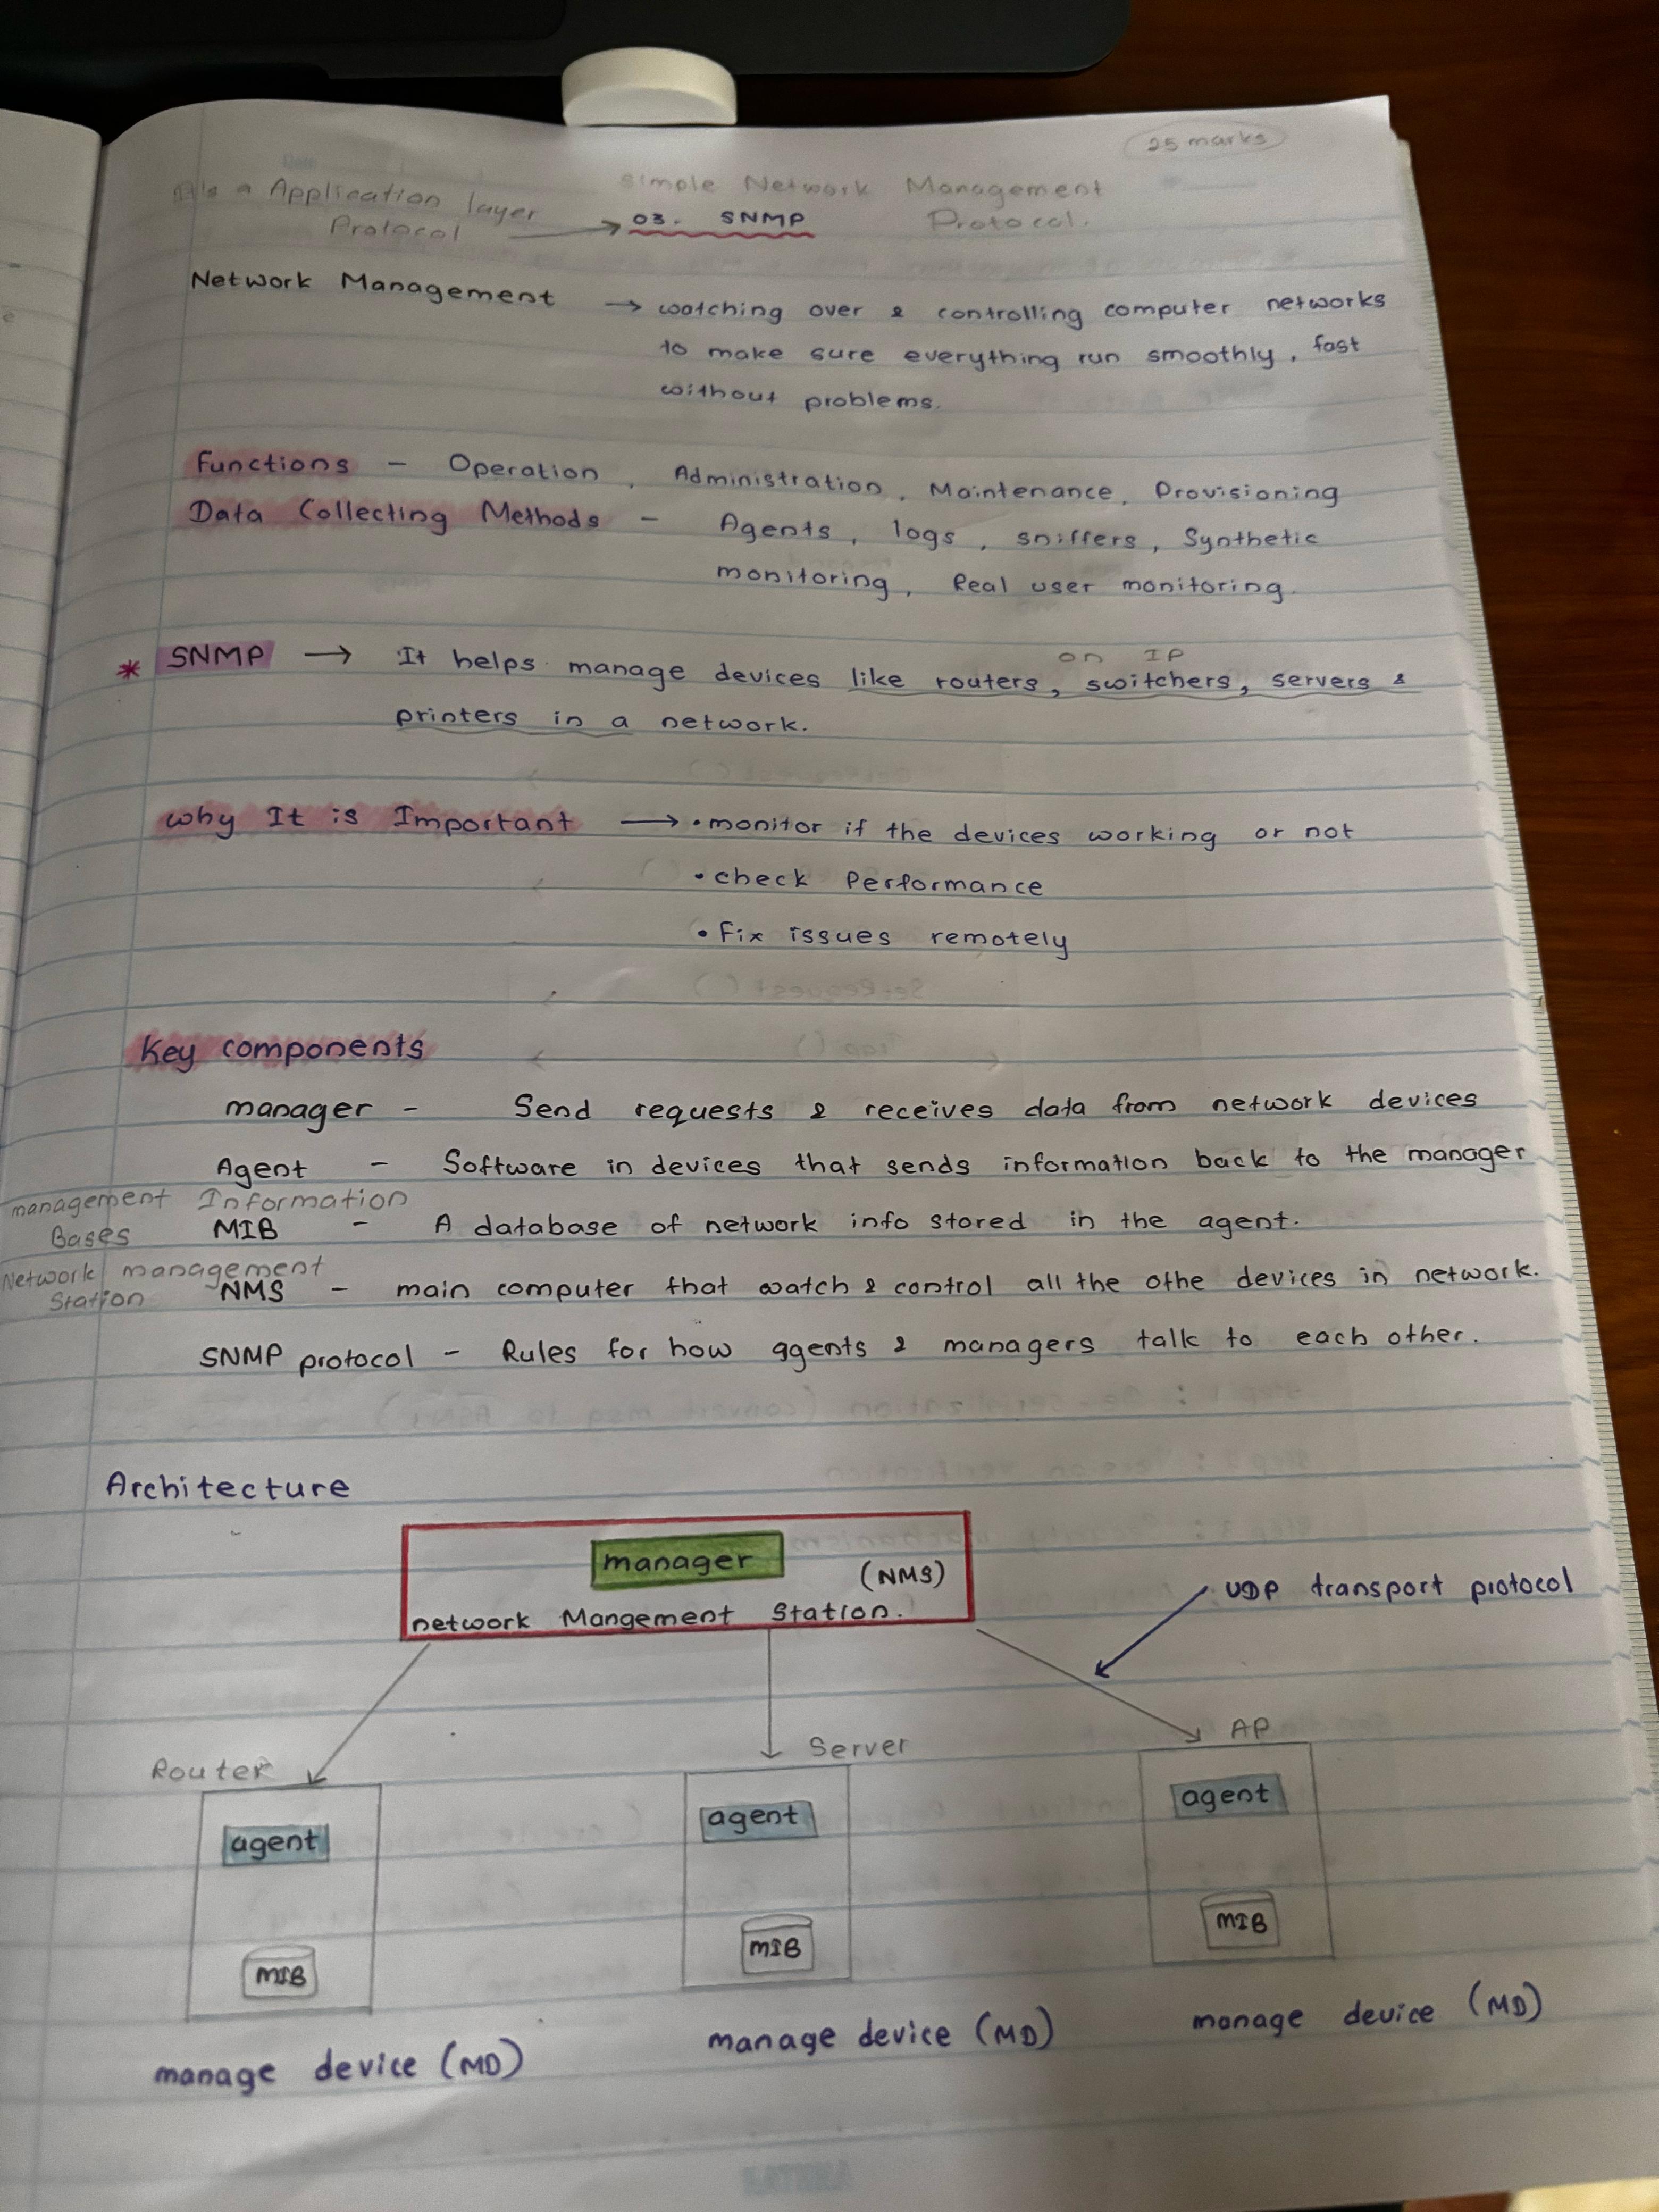 25 marks
It's a Application layer Protocol
Simple Network Management Protocol.
03. SNMP
Network Management → watching over & controlling computer networks
to make sure everything run smoothly, fast
without problems.
Functions - Operation, Administration, Maintenance, Provisioning
Data Collecting Methods - Agents, logs, sniffers, Synthetic
monitoring, Real user monitoring.
on IP
* SNMP → It helps manage devices like routers, switchers, servers &
printers in a network.
why It is Important → • monitor if the devices working or not
• check Performance
• Fix issues remotely
Key components
manager - Send requests & receives data from network devices
Agent - Software in devices that sends information back to the manager
management Information Bases
MIB - A database of network info stored in the agent.
Network management Station
NMS - main computer that watch & control all the othe devices in network.
SNMP protocol - Rules for how agents & managers talk to each other.
Architecture
manager
(NMS)
network Mangement Station.
UDP transport protocol
Router
Server
AP
agent
agent
agent
MIB
MIB
MIB
manage device (MD)
manage device (MD)
manage device (MD)